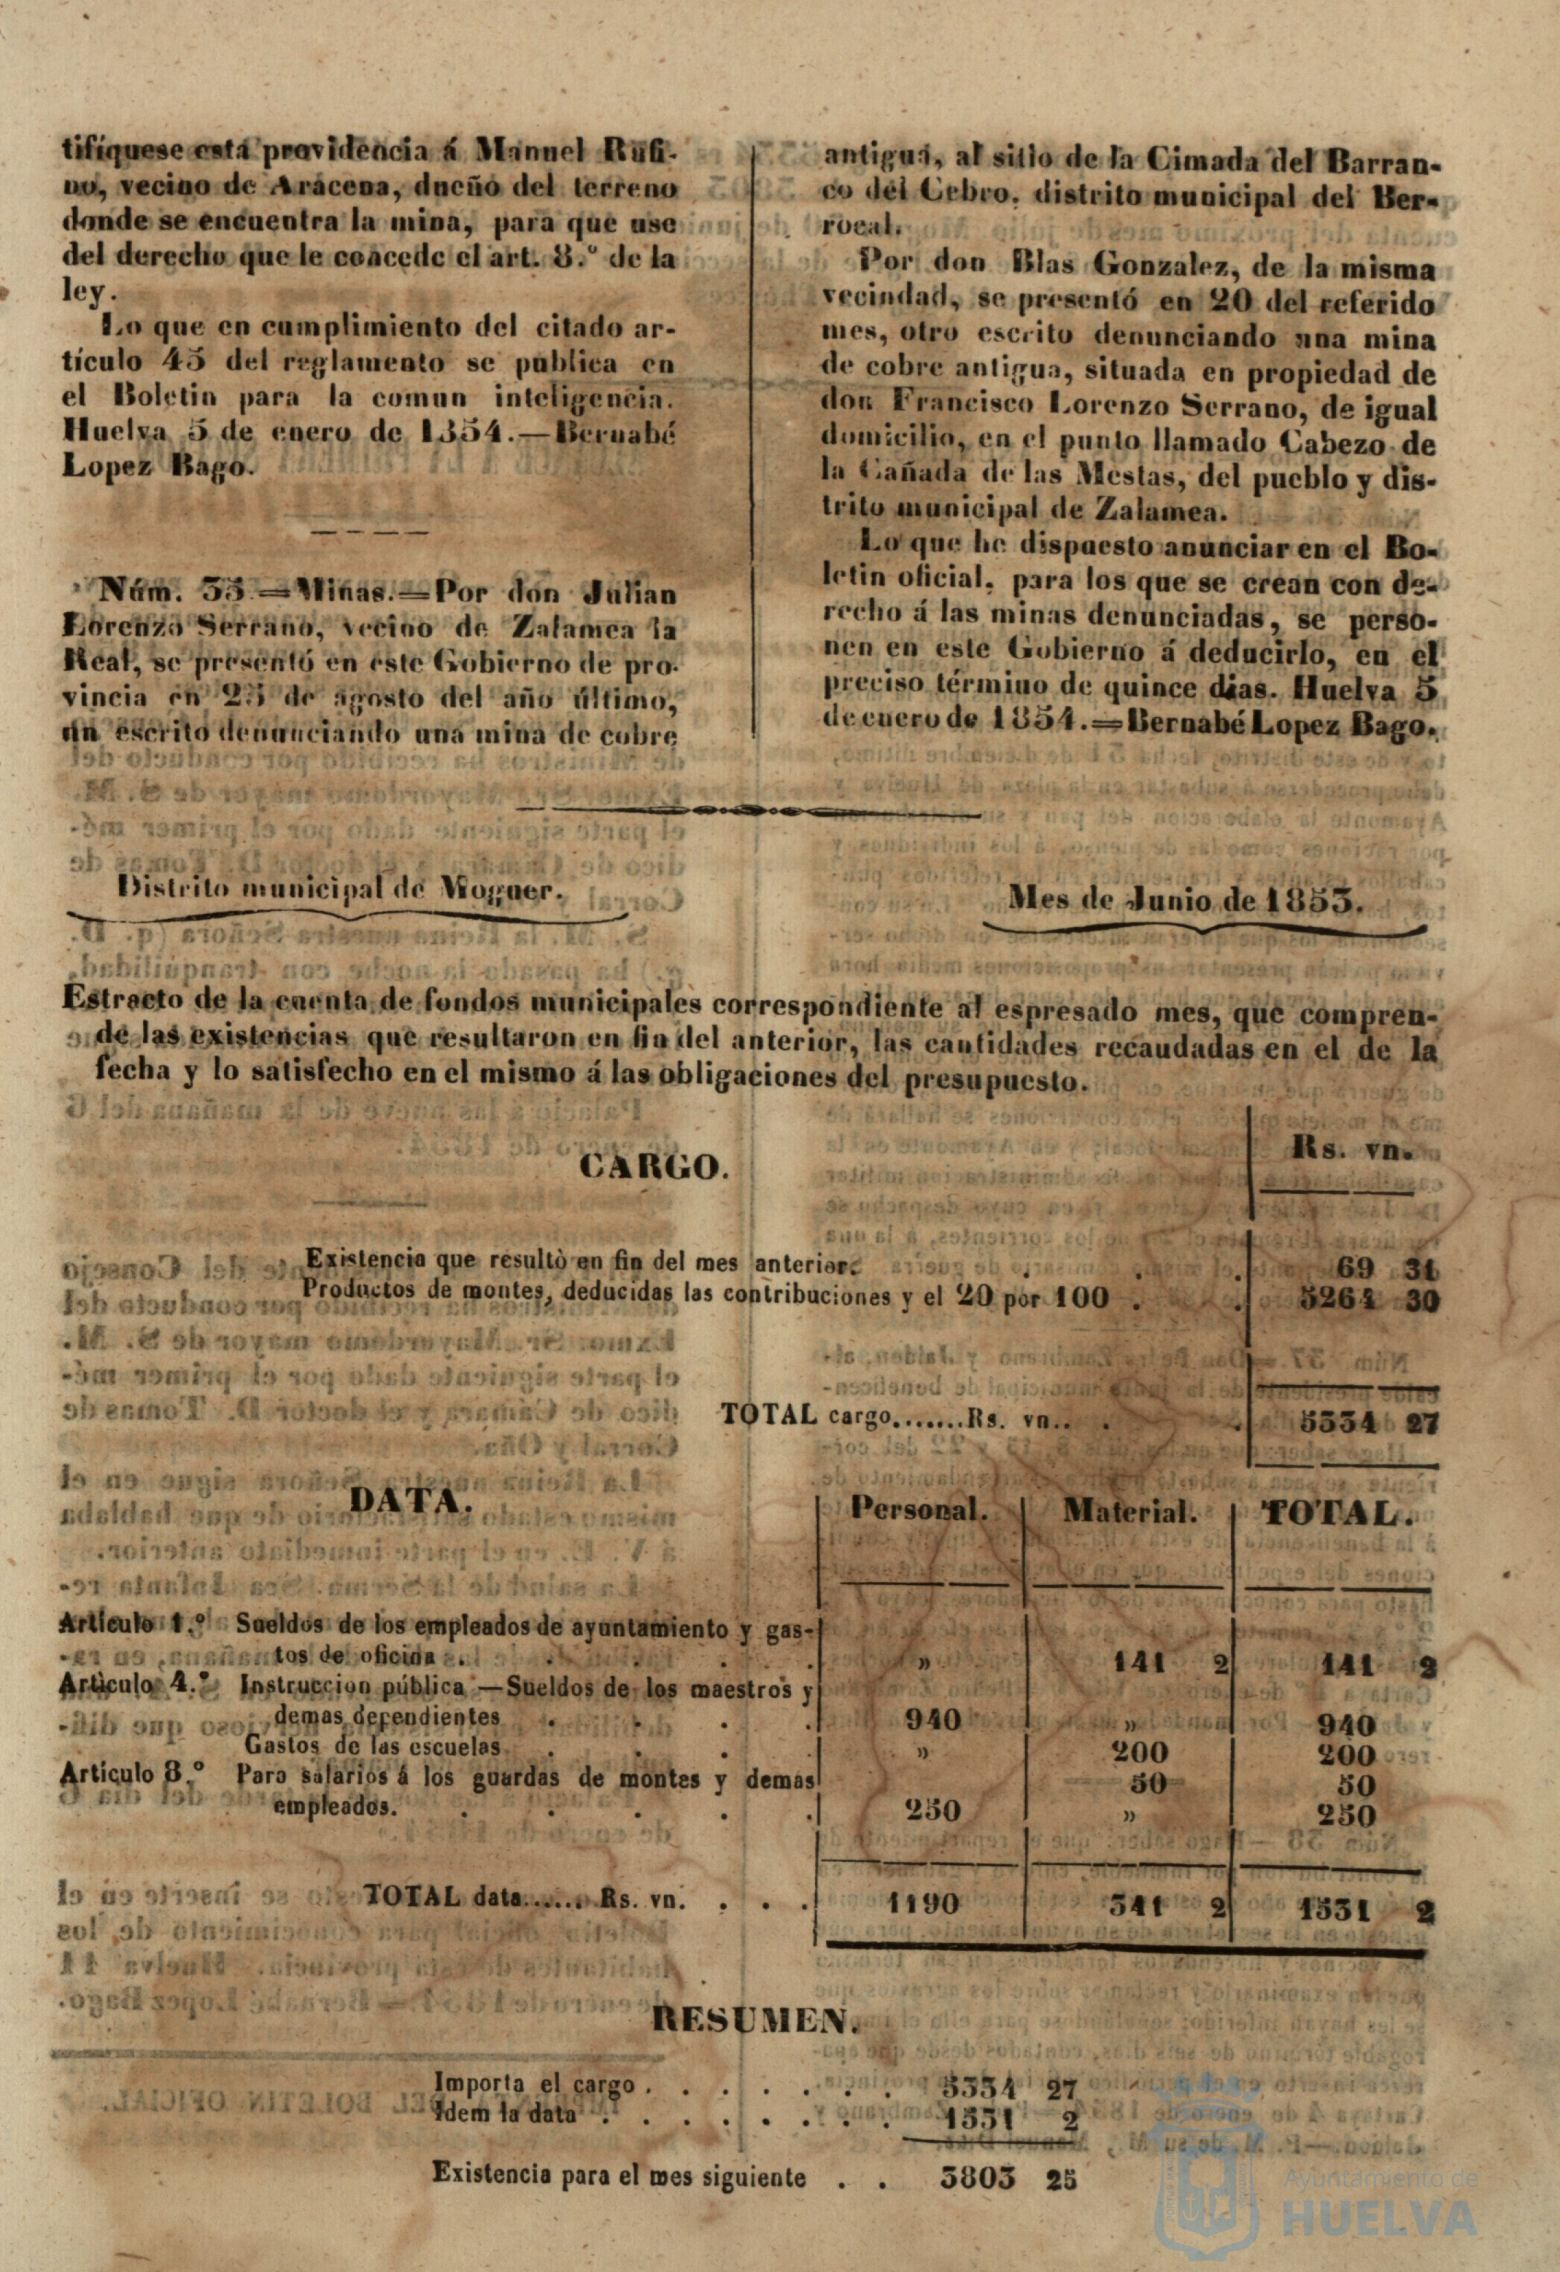 tifíquese esta providencia á Manuel Rufi-
no, vecino de Aracena, dueño del terreno
donde se encuentra la mina, para que use
del derecho que le concede el art. 8.º de la
ley.
Lo que en cumplimiento del citado ar-
tículo 45 del reglamento se publica en
el Boletin para la comun inteligencia.
Huelva 5 de enero de 1854.—Bernabé
Lopez Bago.
Núm. 35.=Minas.=Por don Julian
Lorenzo Serrano, vecino de Zalamea la
Real, se presentó en este Gobierno de pro-
vincia en 25 de agosto del año último,
un escrito denunciando una mina de cobre
antigua, al sitio de la Cimada del Barran-
co del Cebro, distrito municipal del Ber-
rocal.
Por don Blas Gonzalez, de la misma
vecindad, se presentó en 20 del referido
mes, otro escrito denunciando una mina
de cobre antigua, situada en propiedad de
don Francisco Lorenzo Serrano, de igual
domicilio, en el punto llamado Cabezo de
la Cañada de las Mestas, del pueblo y dis-
trito municipal de Zalamea.
Lo que he dispuesto anunciar en el Bo-
letin oficial, para los que se crean con de-
recho á las minas denunciadas, se perso-
nen en este Gobierno á deducirlo, en el
preciso término de quince dias. Huelva 5
de enero de 1854.=Bernabé Lopez Bago.
Distrito municipal de Moguer.
Mes de Junio de 1853.
Estracto de la cuenta de fondos municipales correspondiente al espresado mes, que compren-
de las existencias que resultaron en fin del anterior, las cantidades recaudadas en el de la
fecha y lo satisfecho en el mismo á las obligaciones del presupuesto.
CARGO. Rs. vn.
Existencia que resultò en fin del mes anterior. . . . 69 31
Productos de montes, deducidas las contribuciones y el 20 por 100 . . 5264 30
TOTAL cargo.......Rs. vn.. . . 5334 27
DATA. Personal. Material. TOTAL.
Artículo 1.º Sueldos de los empleados de ayuntamiento y gas-
tos de oficina . . . . . » 141 2 141 2
Artículo 4.º Instruccion pública —Sueldos de los maestros y
demas dependientes . . . . 940 » 940
Gastos de las escuelas . . . . » 200 200
Articulo 8.º Para salarios á los guardas de montes y demas 50 50
empleados. . . . . . 250 » 250
TOTAL data...... Rs. vn. . . . 1190 341 2 1531 2
RESUMEN.
Importa el cargo . . . . . . . 5334 27
Idem la data . . . . . . . . 1531 2
Existencia para el mes siguiente . . 3803 25
Ayuntamiento de
HUELVA